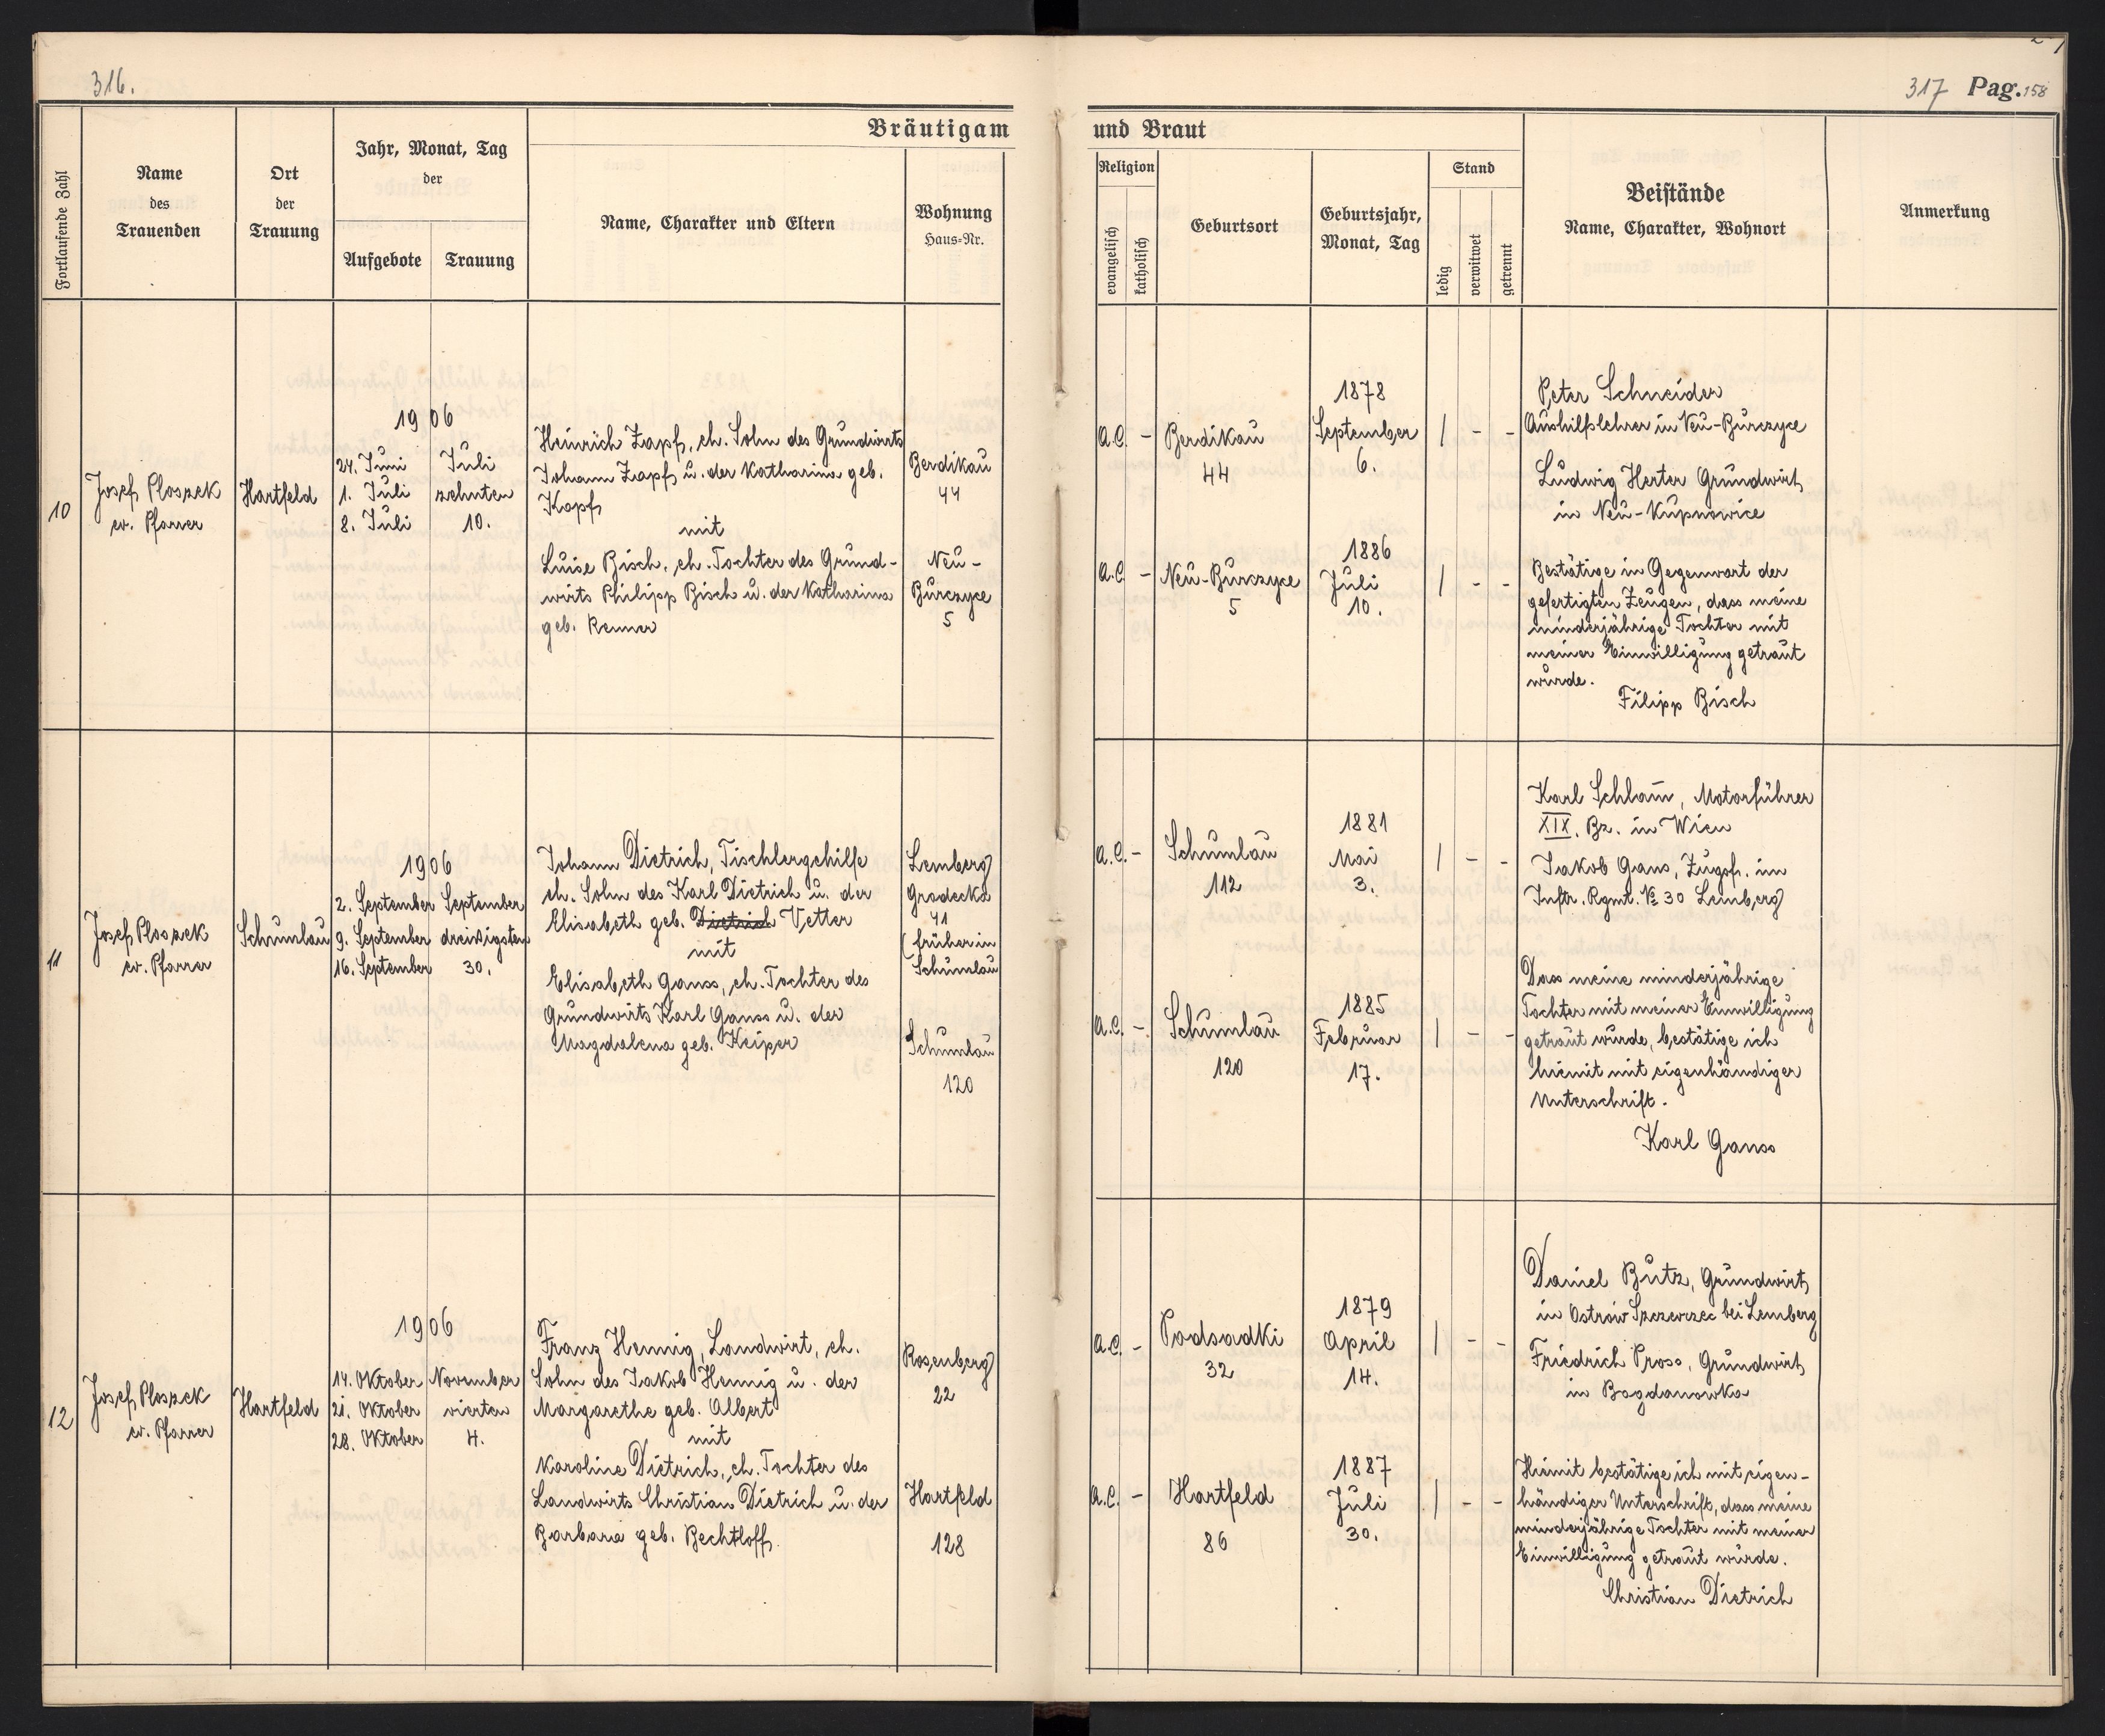 316.
317 Pag. 158
Bräutigam und Braut
Fortlaufende Zahl
Name
des
Trauenden
Ort
der
Trauung
Jahr, Monat, Tag
der
Aufgebote
Trauung
Name, Charakter und Eltern
Wohnung
Haus=Nr.
Religion
evangelisch
katholisch
Geburtsort
Geburtsjahr,
Monat, Tag
Stand
ledig
verwitwet
getrennt
Beistände
Name, Charakter, Wohnort
Anmerkung
10
Josef Ploszek
ev. Pfarrer
Hartfeld
1906
24. Juni
1. Juli
8. Juli
Juli
zehnten
10.
Heinrich Zapf, eh. Sohn des Grundwirts
Johann Zapf u. der Katharina geb.
Kopf
mit
Luise Bisch, eh. Tochter des Grund-
wirts Philipp Bisch u. der Katharina
geb. Renner
Berdikau
44
Neu-
Burczyce
5
A.C. -
Berdikau
44
1878
September
6.
| - -
A.C. -
Neu-Burczyce
5
1886
Juli
10.
| - -
Peter Schneider
Aushilfslehrer in Neu-Burczyce
Ludwig Herter Grundwirt
in Neu-Kupnowice
Bestätige in Gegenwart der
gefertigten Zeugen, dass meine
minderjährige Tochter mit
meiner Einwilligung getraut
wurde.
Filipp Bisch
11
Josef Ploszek
ev. Pfarrer
Schumlau
1906
2. September
9. September
16. September
September
dreisigsten
30.
Johann Dietrich, Tischlergehilfe
eh. Sohn des Karl Dietrich u. der
Elisabeth geb. Dietrich Vetter
mit
Elisabeth Ganss, eh. Tochter des
Grundwirts Karl Ganss u. der
Magdalena geb. Keiper
Lemberg
Grodecka
41
(früher in
Schumlau
Schumlau
120
A.C. -
Schumlau
112
1881
Mai
3.
| - -
A.C. -
Schumlau
120
1885
Februar
17.
| - -
Karl Schlam̄, Motorführer
XIX. Bz. in Wien
Jakob Gans, Zugsf. im
Inftr. Rgmt. № 30 Lemberg
Dass meine minderjährige
Tochter mit meiner Einwilligung
getraut wurde, bestätige ich
hiemit mit eigenhändiger
Unterschrift.
Karl Ganss
12
Josef Ploszek
ev. Pfarrer
Hartfeld
1906
14. Oktober
21. Oktober
28. Oktober
November
vierten
4.
Franz Hennig, Landwirt, eh.
Sohn des Jakob Hennig u. der
Margarethe geb. Albert
mit
Karoline Dietrich, eh. Tochter des
Landwirts Christian Dietrich u. der
Barbara geb. Bechtloff
Rosenberg
22
Hartfeld
128
A.C. -
Podsadki
32
1879
April
14.
| - -
A.C. -
Hartfeld
86
1887
Juli
30.
| - -
Daniel Butz, Grundwirt
in Ostrów Szczerzec bei Lemberg
Friedrich Pross, Grundwirt
in Bogdanowka
Hiemit bestätige ich mit eigen-
händiger Unterschrift, dass meine
minderjährige Tochter mit meiner
Einwilligung getraut wurde.
Christian Dietrich